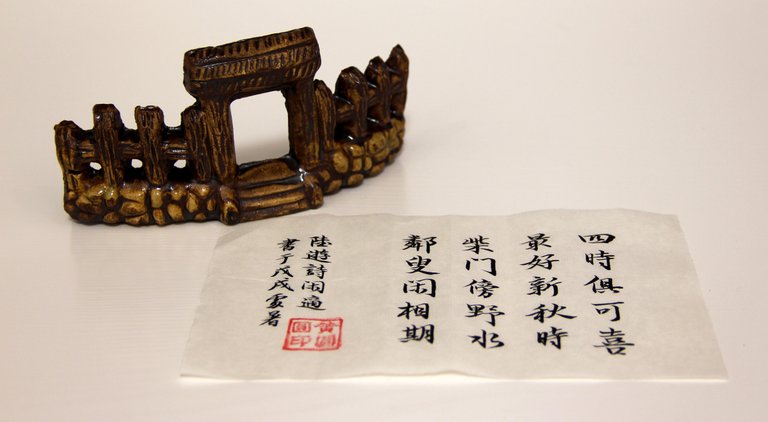 四時俱可喜
最好新秋時
柴门傍野水
鄰叟闲相期
陸遊詩闲適
書于戊戌處暑